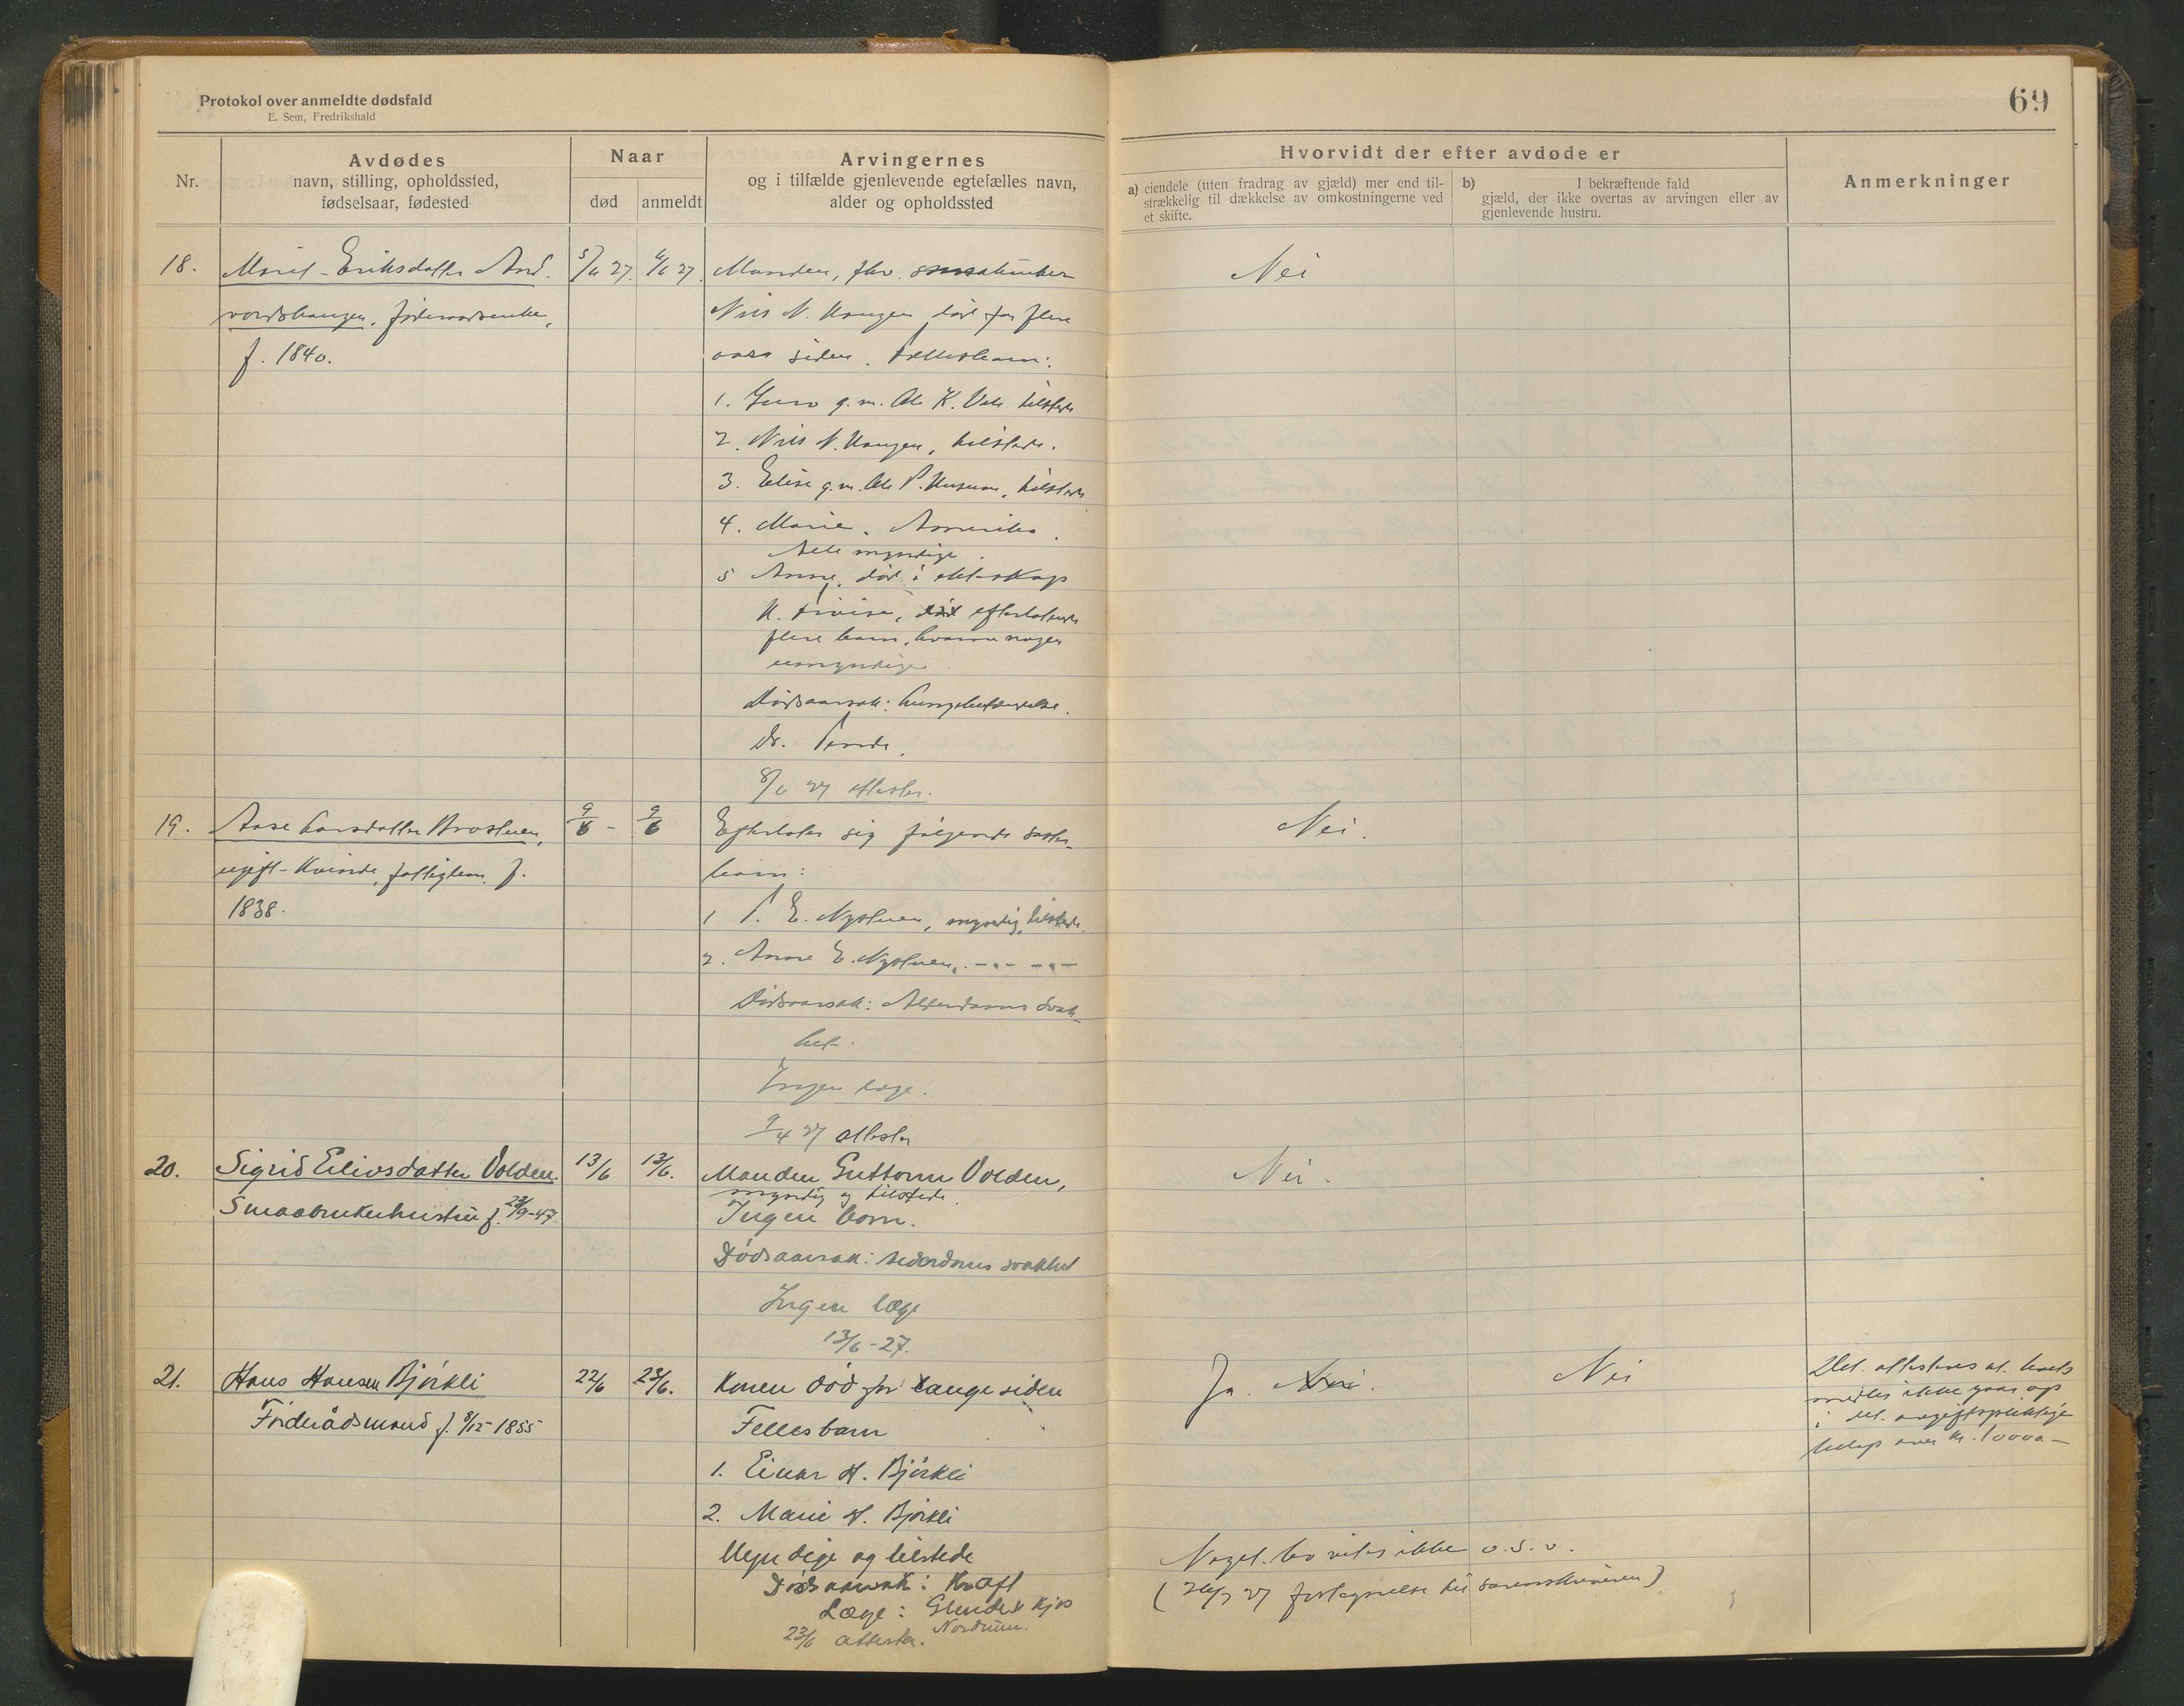 Protokol over anmeldte dødsfald
E. Sem, Fredrikshald
69
Nr.
Avdødes
navn, stilling, opholdssted,
fødselsaar, fødested
Naar
død
anmeldt
Arvingernes
og i tilfælde gjenlevende egtefælles navn,
alder og opholdssted
Hvorvidt der efter avdøde er
a) eiendele (uten fradrag av gjæld) mer end til-
strækkelig til dækkelse av omkostningerne ved
et skifte.
b) I bekræftende fald
gjæld, der ikke overtas av arvingen eller av
gjenlevende hustru.
Anmerkninger
18.
Marit Eriksdatter And-
vordshaugen, føderaadsenke,
f. 1840.
5/6 27.
6/6 27.
Manden, fhv. smaabruker
Nils N. Haugen død for flere
aar siden. Fællesbarn:
1. Guro g.m. Ole K. Vole tilstede
2. Nils N. Haugen, tilstede.
3. Elise g.m. Ole P. Husum, tilstede
4. Marie, Amerika.
Alle myndige.
5 Anne, død i ekteskap
efterlatende
flere barn, hvorav nogen
umyndige
Dødsaarsak: lungebetændelse.
Dr.
8/6 27 attester.
Nei
19.
Aase Larsdatter Brostuen,
ugift kvinde, fattiglem. f.
1838.
9/6 -
9/6
Efterlater sig følgende søster-
barn:
1 P. E. Nystuen, myndig, tilstede.
2. Anne E. Nystuen, -"- -"-
Dødsaarsak: Alderdoms svak-
het.
Ingen læge.
9/4 27 attester
Nei.
20.
Sigrid Eilivsdatter Volden.
Smaabrukerhustru f. 23/9-47
13/6
13/6.
Manden Guttorm Volden,
myndig og tilstede.
Ingen barn.
Dødsaarsak: Alderdoms svakhet
Ingen læge
13/6-27.
Nei.
21.
Hans Hansen Bjørkli
Føderådsmand f. 8/12-1855
22/6
23/6.
Konen død for lange siden
Fellesbarn
1. Einar H. Bjørkli
2. Marie H. Bjørkli
Myndige og tilstede
Dødsaarsak: Kræft
Læge: Kjos
Nordrum.
23/6 attester.
Ja. Nei.
Nei
Det attesteres at boets
midler ikke gaar op
i det avgiftspliktige
beløp over kr. 10000-
Noget bo vites ikke o.s.v.
(26/7 27 forlagsnelse til sorenskriveren)